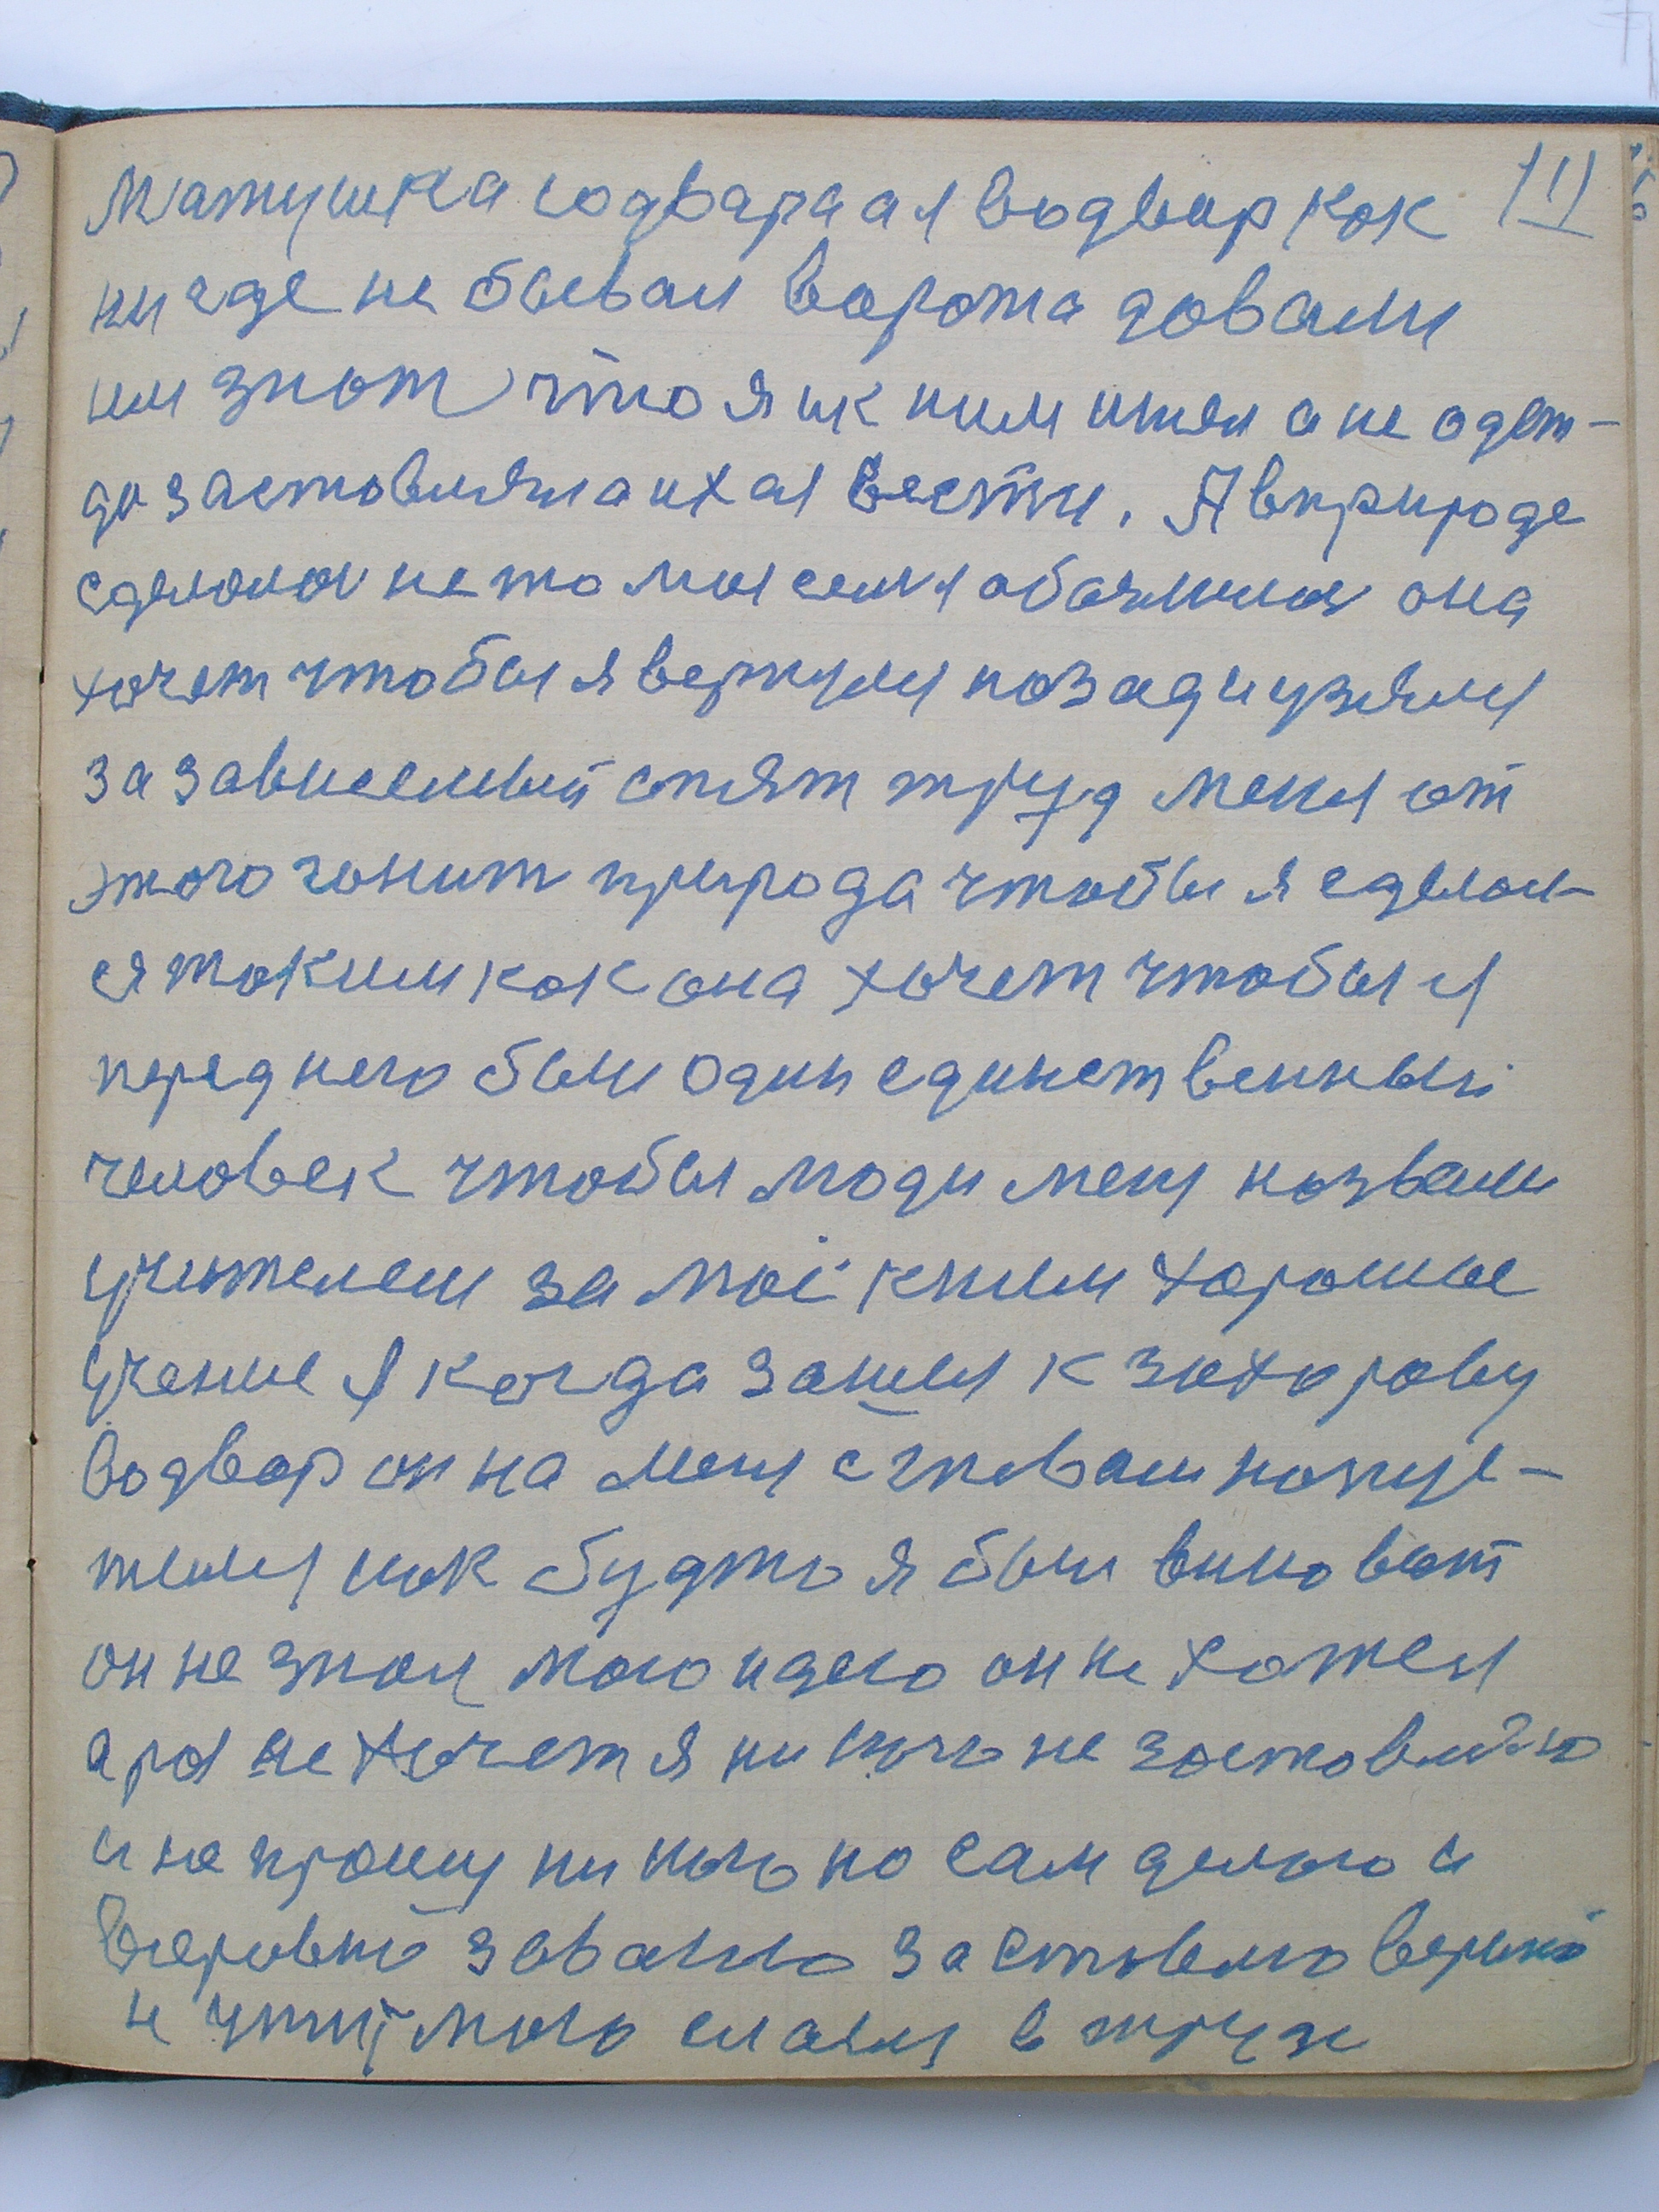 Матушка содвара а я водвор как 111
ни где не бывал ворота довали
им знат что я ик ним ишел а не одет-
да заставляла их ая вести. Я вприроде
сделала не то мыселя обаяшия она
хочет чтобы я вернулся назад и узялся
за зависемый спят труд меня от
этого гонит природа чтобы я сделал-
ся таким как она хочет чтобы я
перед него был один единственный
человек чтобы люди меня назвали
учителем за моё к ним хорошие
учение я когда зашел к захорову
водвор он на меня с гневам
как будто я был виноват
он не знал мого идего он не хотел
а раз не хочет я ни кого не заставляю
и не прошу ни кого но сам делаю и
заставляю
мого в труде